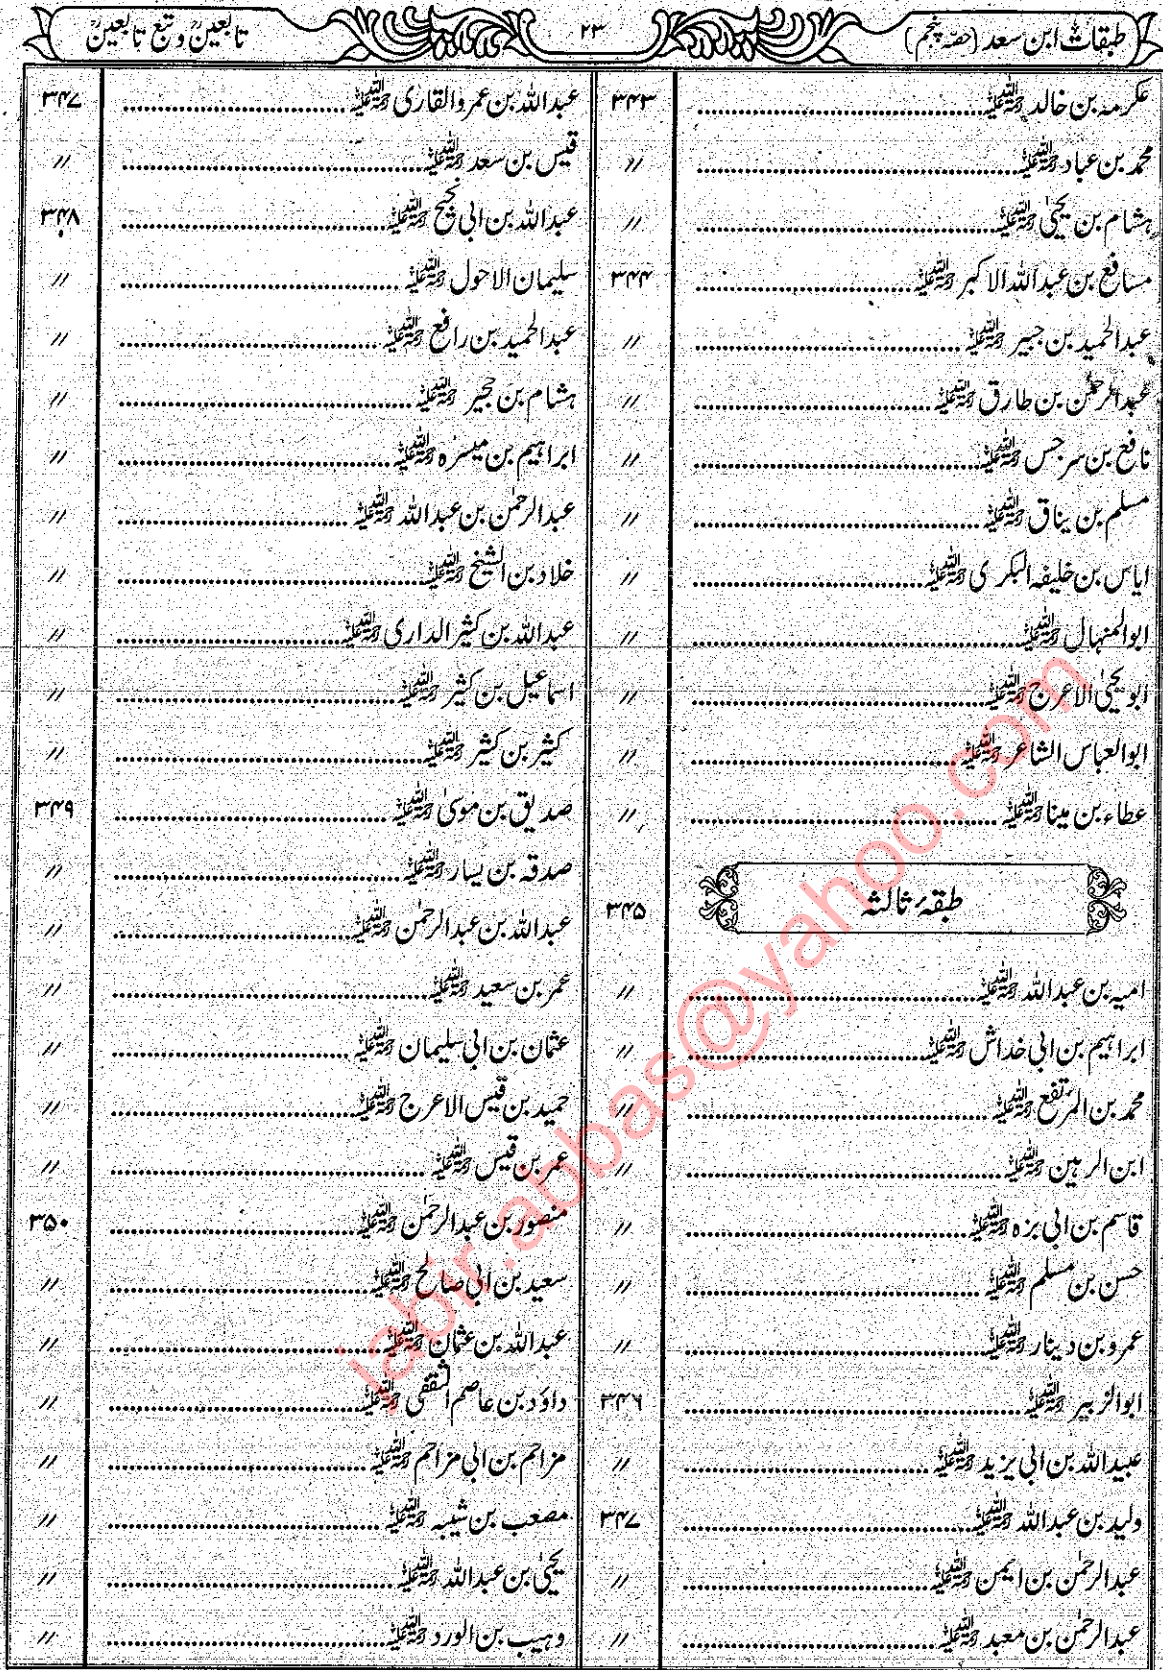 طبقات ابن سعد (حصہ پنجم)
۲۳
تابعینؒ و تبع تابعینؒ
عکرمہ بن خالد رحمۃ اللہ علیہ ۳۴۳
محمد بن عباد رحمۃ اللہ علیہ //
ہشام بن یحییٰ رحمۃ اللہ علیہ //
مسافع بن عبداللہ الاکبر رحمۃ اللہ علیہ ۳۴۴
عبدالحمید بن جبیر رحمۃ اللہ علیہ //
عبدالرحمٰن بن طارق رحمۃ اللہ علیہ //
نافع بن سرجس رحمۃ اللہ علیہ //
مسلم بن یناق رحمۃ اللہ علیہ //
ایاس بن خلیفہ البکری رحمۃ اللہ علیہ //
ابوالمنہال رحمۃ اللہ علیہ //
ابو یحییٰ الاعرج رحمۃ اللہ علیہ //
ابوالعباس الشاعر رحمۃ اللہ علیہ //
عطاء بن مینا رحمۃ اللہ علیہ //
طبقۂ ثالثہ ۳۴۵
امیہ بن عبداللہ رحمۃ اللہ علیہ //
ابراہیم بن ابی خداش رحمۃ اللہ علیہ //
محمد بن المرتفع رحمۃ اللہ علیہ //
ابن الرہین رحمۃ اللہ علیہ //
قاسم بن ابی بزہ رحمۃ اللہ علیہ //
حسن بن مسلم رحمۃ اللہ علیہ //
عمرو بن دینار رحمۃ اللہ علیہ //
ابوالزبیر رحمۃ اللہ علیہ ۳۴۶
عبیداللہ بن ابی یزید رحمۃ اللہ علیہ //
ولید بن عبداللہ رحمۃ اللہ علیہ ۳۴۷
عبدالرحمٰن بن ایمن رحمۃ اللہ علیہ //
عبدالرحمٰن بن معبد رحمۃ اللہ علیہ //
عبداللہ بن عمرو القاری رحمۃ اللہ علیہ ۳۴۷
قیس بن سعد رحمۃ اللہ علیہ //
عبداللہ بن ابی نجیح رحمۃ اللہ علیہ ۳۴۸
سلیمان الاحول رحمۃ اللہ علیہ //
عبدالحمید بن رافع رحمۃ اللہ علیہ //
ہشام بن حجیر رحمۃ اللہ علیہ //
ابراہیم بن میسرہ رحمۃ اللہ علیہ //
عبدالرحمٰن بن عبداللہ رحمۃ اللہ علیہ //
خلاد بن الشیخ رحمۃ اللہ علیہ //
عبداللہ بن کثیر الداری رحمۃ اللہ علیہ //
اسماعیل بن کثیر رحمۃ اللہ علیہ //
کثیر بن کثیر رحمۃ اللہ علیہ //
صدیق بن موسیٰ رحمۃ اللہ علیہ ۳۴۹
صدقہ بن یسار رحمۃ اللہ علیہ //
عبداللہ بن عبدالرحمٰن رحمۃ اللہ علیہ //
عمر بن سعید رحمۃ اللہ علیہ //
عثمان بن ابی سلیمان رحمۃ اللہ علیہ //
حمید بن قیس الاعرج رحمۃ اللہ علیہ //
عمر بن قیس رحمۃ اللہ علیہ //
منصور بن عبدالرحمٰن رحمۃ اللہ علیہ ۳۵۰
سعید بن ابی صالح رحمۃ اللہ علیہ //
عبداللہ بن عثمان رحمۃ اللہ علیہ //
داؤد بن عاصم الثقفی رحمۃ اللہ علیہ //
مزاحم بن ابی مزاحم رحمۃ اللہ علیہ //
مصعب بن شیبہ رحمۃ اللہ علیہ //
یحییٰ بن عبداللہ رحمۃ اللہ علیہ //
وہیب بن الورد رحمۃ اللہ علیہ //
jabir.abbas@yahoo.com